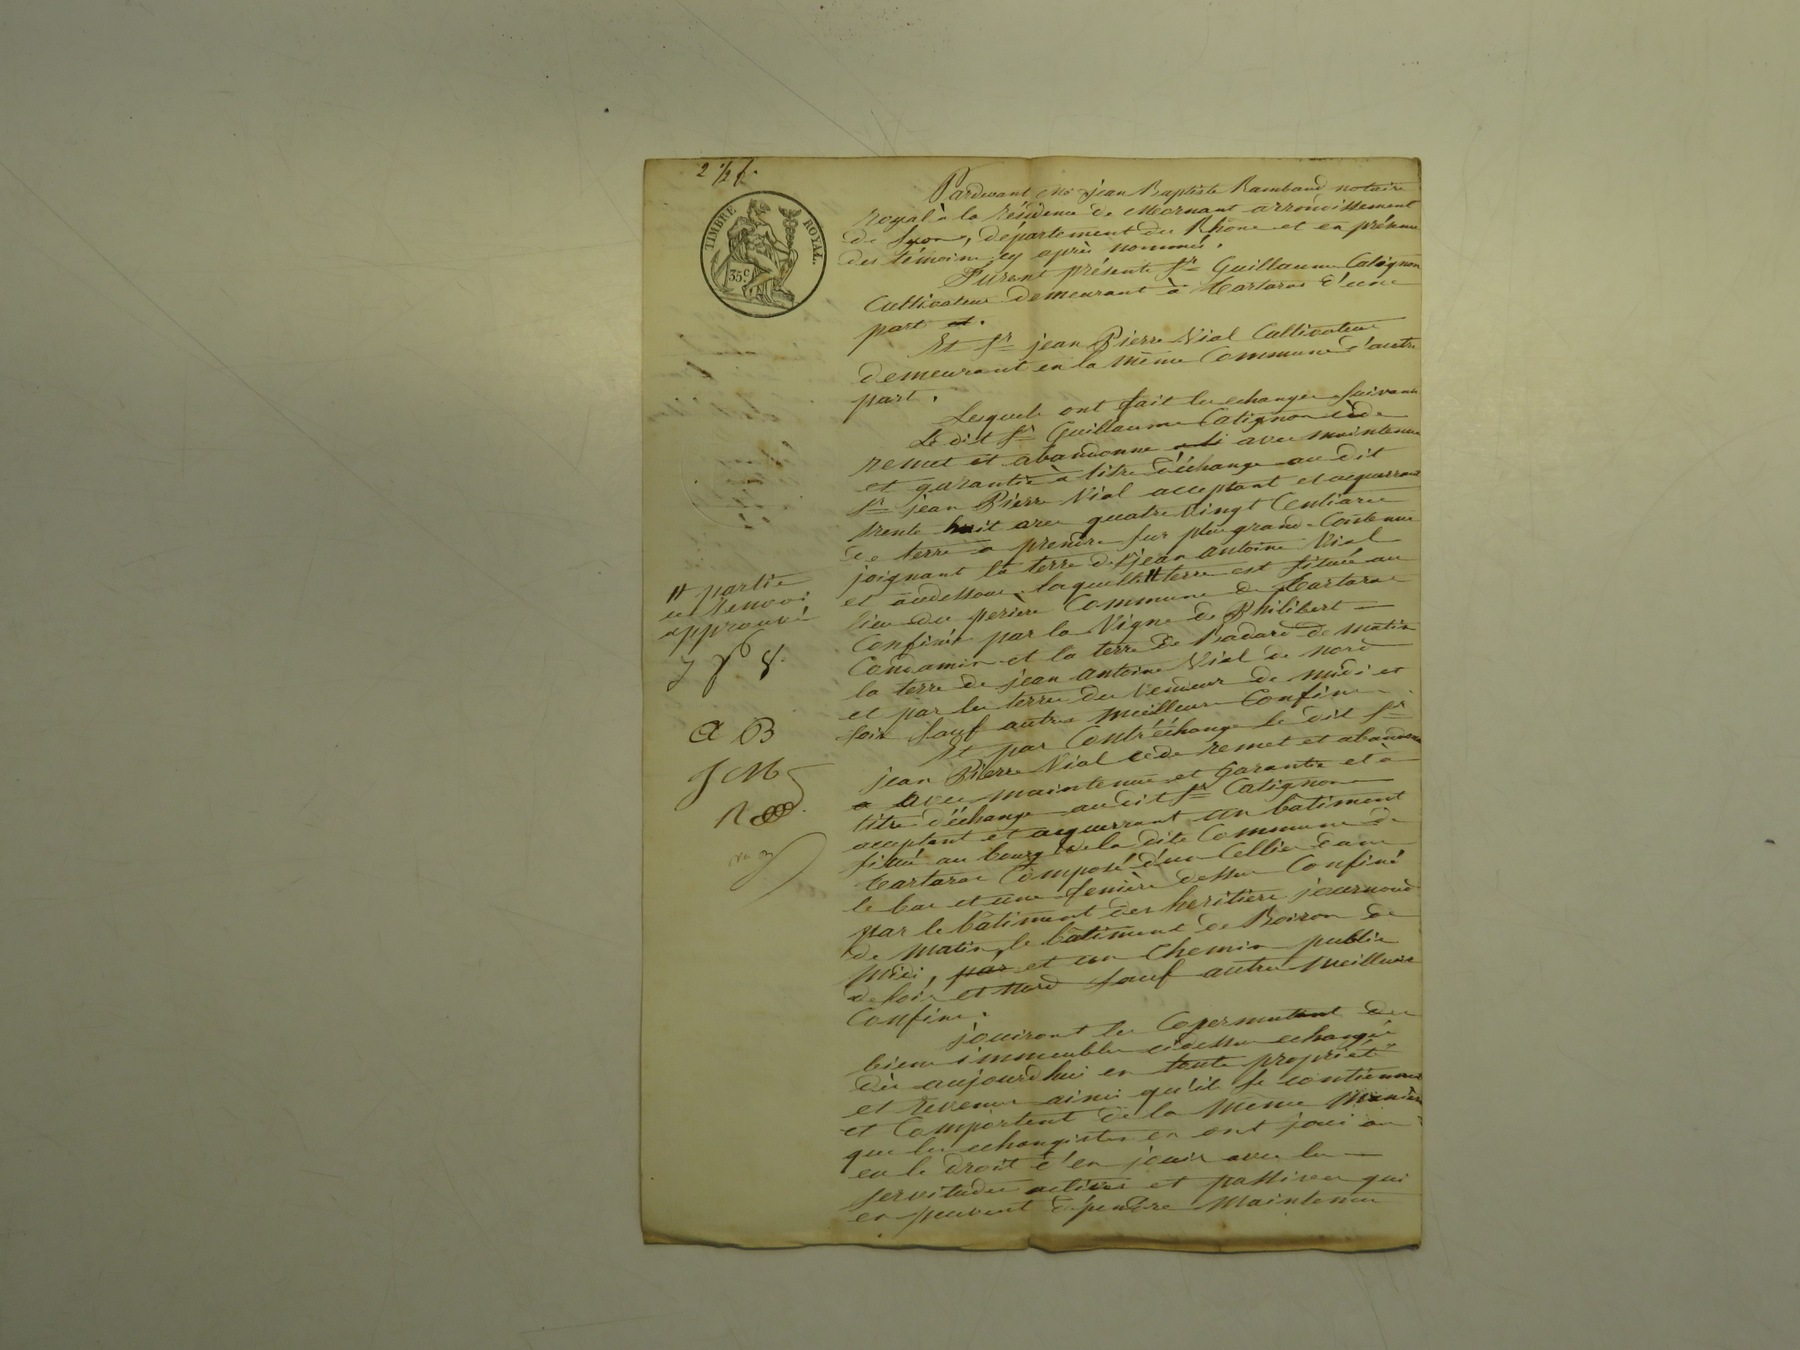 2 1/2 f.
TIMBRE ROYAL.
35 c.
Pardevant Me jean Baptiste Rambaud notaire
royal à la résidence de Mornant arrondissement
de Lyon, département du Rhône et en présence
des témoins cy après nommés.
Furent présents sr Guillaume Catignon
Cultivateur demeurant à tartaras d'une
part et.
Et sr jean Pierre Vial Cultivateur
demeurant en la même Commune d'autre
part.
Lesquels ont fait les echanges suivants
Le dit sr Guillaume Catignon cède
remet et abandonne avec maintenue
et garantie à titre d'échange au dit
sr jean Pierre Vial acceptant et acquerrant
trente huit ares quatre vingt Centiares
de terre a prendre sur plus grande Contenue
joignant la terre de jean antoine Vial
et audessous. laquelle # terre est située au
lieu du perière Commune de tartaras
Confinée par la Vigne de Philibert
Condamin et la terre de Badard de matin
la terre de jean antoine Vial de nord
et par les terres du Vendeur de midi et
soir sauf autres meilleurs Confins.
Et par Contréchange le dit sr
jean Pierre Vial cède remet et abandonne
avec maintenue et garantie et à
titre d'échange audit sr Catignon
acceptant et acquerrant un batiment
situé au bourg de la dite Commune de
tartaras Composé d'un Cellier dans
le bas et une fenière dessus Confiné
par le bâtiment des heritiers journoud
de matin, le bâtiment de Boiron de
midi, par et un Chemin public
de soir et nord sauf autres meilleurs
Confins.
jouiront les Copermutant des
biens immeubles cidessus echangés
dès aujourd'hui en toute propriété
et revenus ainsi qu'ils se contiennent
et Comportent de la même manière
que les echangistes en ont joui ou
eu le droit d'en jouir avec les
servitudes actives et passives qui
en peuvent dépendre maintenus
# partie
approuvé
J P V
C B
J M